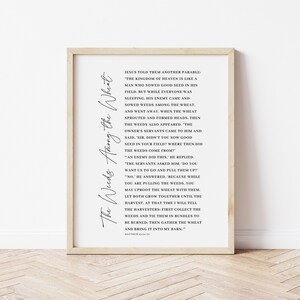 The Weeds Among the Wheat
JESUS TOLD THEM ANOTHER PARABLE:
"THE KINGDOM OF HEAVEN IS LIKE A
MAN WHO SOWED GOOD SEED IN HIS
FIELD. BUT WHILE EVERYONE WAS
SLEEPING, HIS ENEMY CAME AND
SOWED WEEDS AMONG THE WHEAT,
AND WENT AWAY. WHEN THE WHEAT
SPROUTED AND FORMED HEADS, THEN
THE WEEDS ALSO APPEARED. "THE
OWNER'S SERVANTS CAME TO HIM AND
SAID, 'SIR, DIDN'T YOU SOW GOOD
SEED IN YOUR FIELD? WHERE THEN DID
THE WEEDS COME FROM?'
"'AN ENEMY DID THIS,' HE REPLIED.
"THE SERVANTS ASKED HIM, 'DO YOU
WANT US TO GO AND PULL THEM UP?'
"'NO,' HE ANSWERED, 'BECAUSE WHILE
YOU ARE PULLING THE WEEDS, YOU
MAY UPROOT THE WHEAT WITH THEM.
LET BOTH GROW TOGETHER UNTIL THE
HARVEST. AT THAT TIME I WILL TELL
THE HARVESTERS: FIRST COLLECT THE
WEEDS AND TIE THEM IN BUNDLES TO
BE BURNED; THEN GATHER THE WHEAT
AND BRING IT INTO MY BARN.'"